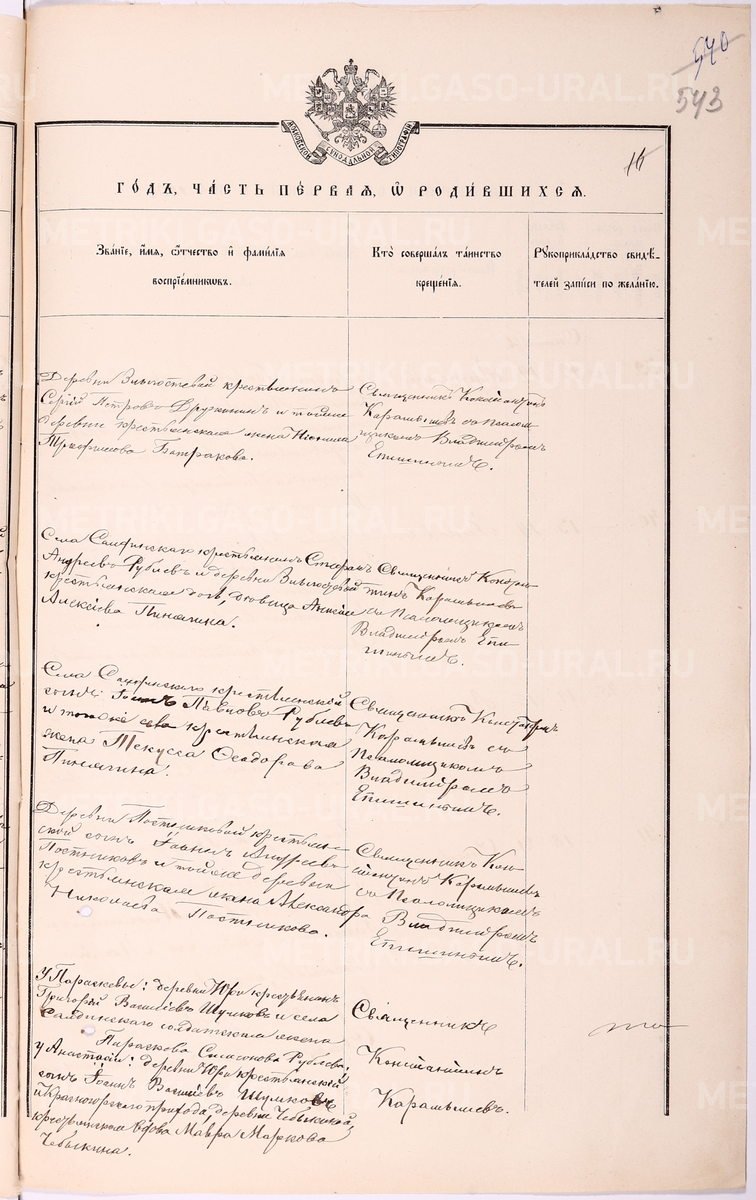 540
543
МОСКОВСКОЙ СѴНОДАЛЬНОЙ ТИПОГРАФІИ
16
ГО́ДЪ, ЧА́СТЬ ПЕ́РВАЯ, Ѽ РОДИ́ВШИХСЯ.
Зва́нїе, и҆́мя, ѻ҆́тчество и҆ фами́лїя
воспрїе́мниковъ.
Кто̀ соверша́лъ та́инство
креще́нїя.
Рꙋкоприкла́дство свидѣ́-
телей за́писи по жела́нїю.
Деревни крестьянинъ
Сергій Петровъ Дружининъ и тойже
деревни крестьянская жена
Трифонова Батракова.
Священникъ Константинъ
Карамышевъ съ Псалом
щикомъ Владимиромъ
Епишинымъ.
Села Салдинскаго крестьянинъ Стефанъ
Андреевъ Рублевъ и деревни
крестьянская дочь, девица Анисія
Алексіева Пинягина.
Священникъ Констан
тинъ Карамышевъ
съ Псаломщикомъ
Владимиромъ Епи
шинымъ.
Села Салдинскаго крестьянской
сынъ Іоаннъ Павловъ Рублевъ
и тогоже села крестьянская
жена Текусса Ѳеодорова
Пинягина.
Священникъ Константинъ
Карамышевъ съ
Псаломщикомъ
Владимиромъ
Епишинымъ.
Деревни Постниковой крестьян-
ской сынъ Іоаннъ Андреевъ
Постниковъ и тойже деревни
крестьянская жена Александра
Николаева Постникова.
Священникъ Кон
стантинъ Карамышевъ
съ Псаломщикомъ
Владимиромъ
Епишинымъ.
У Параскевы: деревни Юри крестьянинъ
Григорій Василіевъ Шумковъ и села
Салдинскаго солдатская жена
Параскева Самсонова Рублева;
у Анастасіи: деревни Юри крестьянской
сынъ Іоаннъ Василіевъ Шумковъ
и Красногорскаго прихода, деревни Чебыкиной,
крестьянская вдова Мавра Маркова
Чебыкина.
Священникъ
Константинъ
Карамышевъ.
METRIKI.GASO-URAL.RU